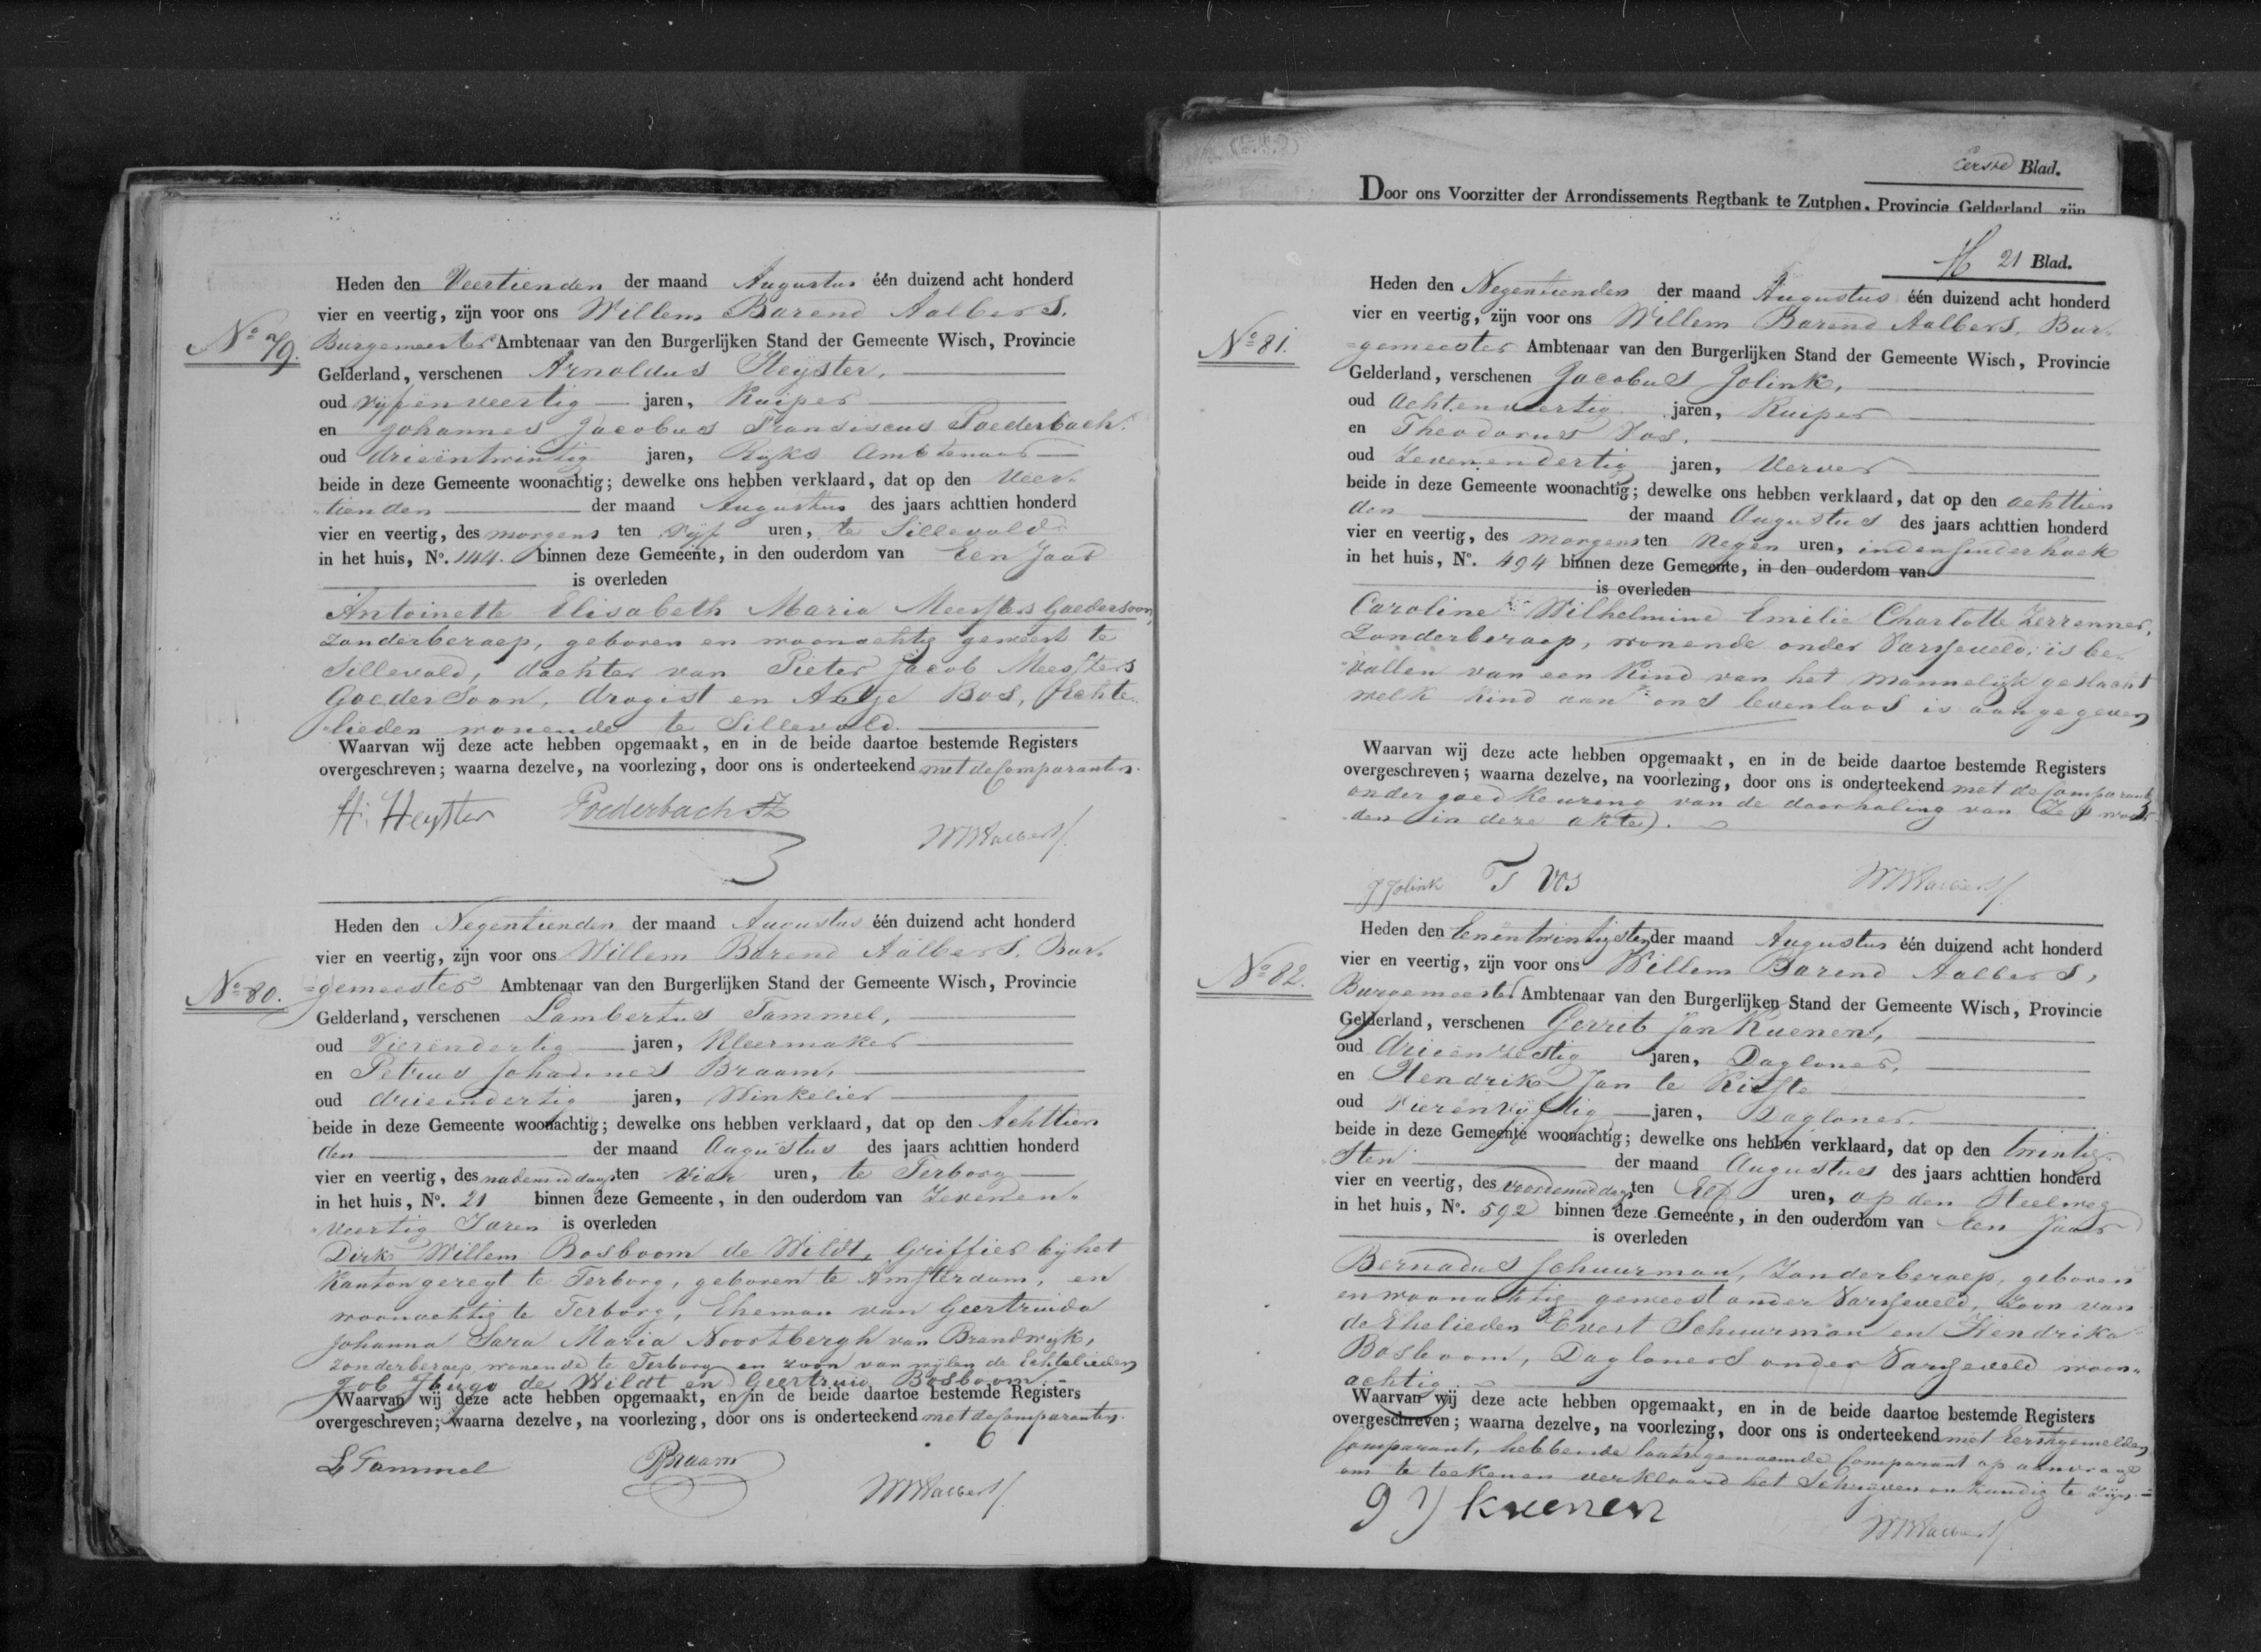 Heden den Veertienden der maand Augustus één duizend acht honderd
vier en veertig, zijn voor ons Willem Barend Aalbers.
No 79. Burgemeester Ambtenaar van den Burgerlijken Stand der Gemeente Wisch, Provincie
Gelderland, verschenen Arnoldus Heyster,
oud vijfenveertig jaren, Kuiper
en Johannes Jacobus Franciscus Poederbach.
oud drieëntwintig jaren, Rijks Ambtenaar
beide in deze Gemeente woonachtig; dewelke ons hebben verklaard, dat op den Veer-
tienden der maand Augustus des jaars achttien honderd
vier en veertig, des morgens ten vijf uren, te Sillevold
in het huis, No. 144. binnen deze Gemeente, in den ouderdom van Een Jaar
is overleden
Antoinette Elisabeth Maria Meesters Goedersoon,
Zonderberoep, geboren en woonachtig geweest te
Sillevold, dochter van Pieter Jacob Meesters
Goedersoon, drogist en Antje Bos, Echte-
lieden wonende te Sillevold.
Waarvan wij deze acte hebben opgemaakt, en in de beide daartoe bestemde Registers
overgeschreven; waarna dezelve, na voorlezing, door ons is onderteekend met de Comparanten.
H. Heyster Poederbach WBAalbers
Heden den Negentienden der maand Augustus één duizend acht honderd
vier en veertig, zijn voor ons Willem Barend Aalbers. Bur-
No 80. =gemeester Ambtenaar van den Burgerlijken Stand der Gemeente Wisch, Provincie
Gelderland, verschenen Lambertus Tammel,
oud Vierendertig jaren, Kleermaker
en Petrus Johannes Braam,
oud drieëndertig jaren, Winkelier
beide in deze Gemeente woonachtig; dewelke ons hebben verklaard, dat op den Achttien
den der maand Augustus des jaars achttien honderd
vier en veertig, des nademiddags ten vier uren, te Terborg
in het huis, No. 21 binnen deze Gemeente, in den ouderdom van Zevenen-
veertig Jaren is overleden
Dirk Willem Bosboom de Wildt, Griffier bij het
Kantongeregt te Terborg, geboren te Amsterdam, en
woonachtig te Terborg, Eheman van Geertruida
Johanna Sara Maria Noortbergh van Brandwijk,
Zonderberoep wonende te Terborg en zoon van wijlen de Echtelieden
Job Hugo de Wildt en Geertruid Bosboom
Waarvan wij deze acte hebben opgemaakt, en in de beide daartoe bestemde Registers
overgeschreven; waarna dezelve, na voorlezing, door ons is onderteekend met de Comparanten.
L Tammel Braam WBAalbers
Eerste Blad.
Door ons Voorzitter der Arrondissements Regtbank te Zutphen, Provincie Gelderland, zijn
21 Blad.
Heden den Negentienden der maand Augustus één duizend acht honderd
vier en veertig, zijn voor ons Willem Barend Aalbers. Bur-
No 81. =gemeester Ambtenaar van den Burgerlijken Stand der Gemeente Wisch, Provincie
Gelderland, verschenen Jacobus Jolink,
oud Achtenveertig jaren, Kuiper
en Theodorus Vos.
oud Zevenendertig jaren, Verver
beide in deze Gemeente woonachtig; dewelke ons hebben verklaard, dat op den achttien
den der maand Augustus des jaars achttien honderd
vier en veertig, des morgens ten Negen uren,
in het huis, No. 494 binnen deze Gemeente, in den ouderdom van
is overleden
Caroline Wilhelmine Emilie Charlotte Zerrenner,
Zonderberoep, wonende onder Varsseveld, is be-
vallen van een Kind van het mannelijk geslacht
welk kind aan ons levenloos is aangegeven
Waarvan wij deze acte hebben opgemaakt, en in de beide daartoe bestemde Registers
overgeschreven; waarna dezelve, na voorlezing, door ons is onderteekend met de Comparanten
onder goedkeuring van de doorhaling van Zes woor
den in deze akte).
J Jolink T Vos WBAalbers
Heden den Eenentwintigsten der maand Augustus één duizend acht honderd
vier en veertig, zijn voor ons Willem Barend Aalbers,
No 82. Burgemeester Ambtenaar van den Burgerlijken Stand der Gemeente Wisch, Provincie
Gelderland, verschenen Gerrit Jan Kuenen,
oud drieenzestig jaren, Dagloner,
en Hendrik Jan te Kiefte
oud Vierenvijftig jaren, Dagloner.
beide in deze Gemeente woonachtig; dewelke ons hebben verklaard, dat op den twintig-
sten der maand Augustus des jaars achttien honderd
vier en veertig, des voordemiddags ten Elf uren, op den Heelweg
in het huis, No. 592 binnen deze Gemeente, in den ouderdom van Een Jaar
is overleden
Bernadus Schuurman, Zonderberoep, geboren
en woonachtig geweest onder Varsseveld, Zoon van
de Ehelieden Evert Schuurman en Hendrika
Bosboom, Dagloners onder Varsseveld woon-
achtig
Waarvan wij deze acte hebben opgemaakt, en in de beide daartoe bestemde Registers
overgeschreven; waarna dezelve, na voorlezing, door ons is onderteekend met Eerstgemelden
Comparant, hebbende laatstgenoemde Comparant op aanvraag
om te teekenen verklaard het Schrijven onkundig te zijn.
g J kuenen WBAalbers